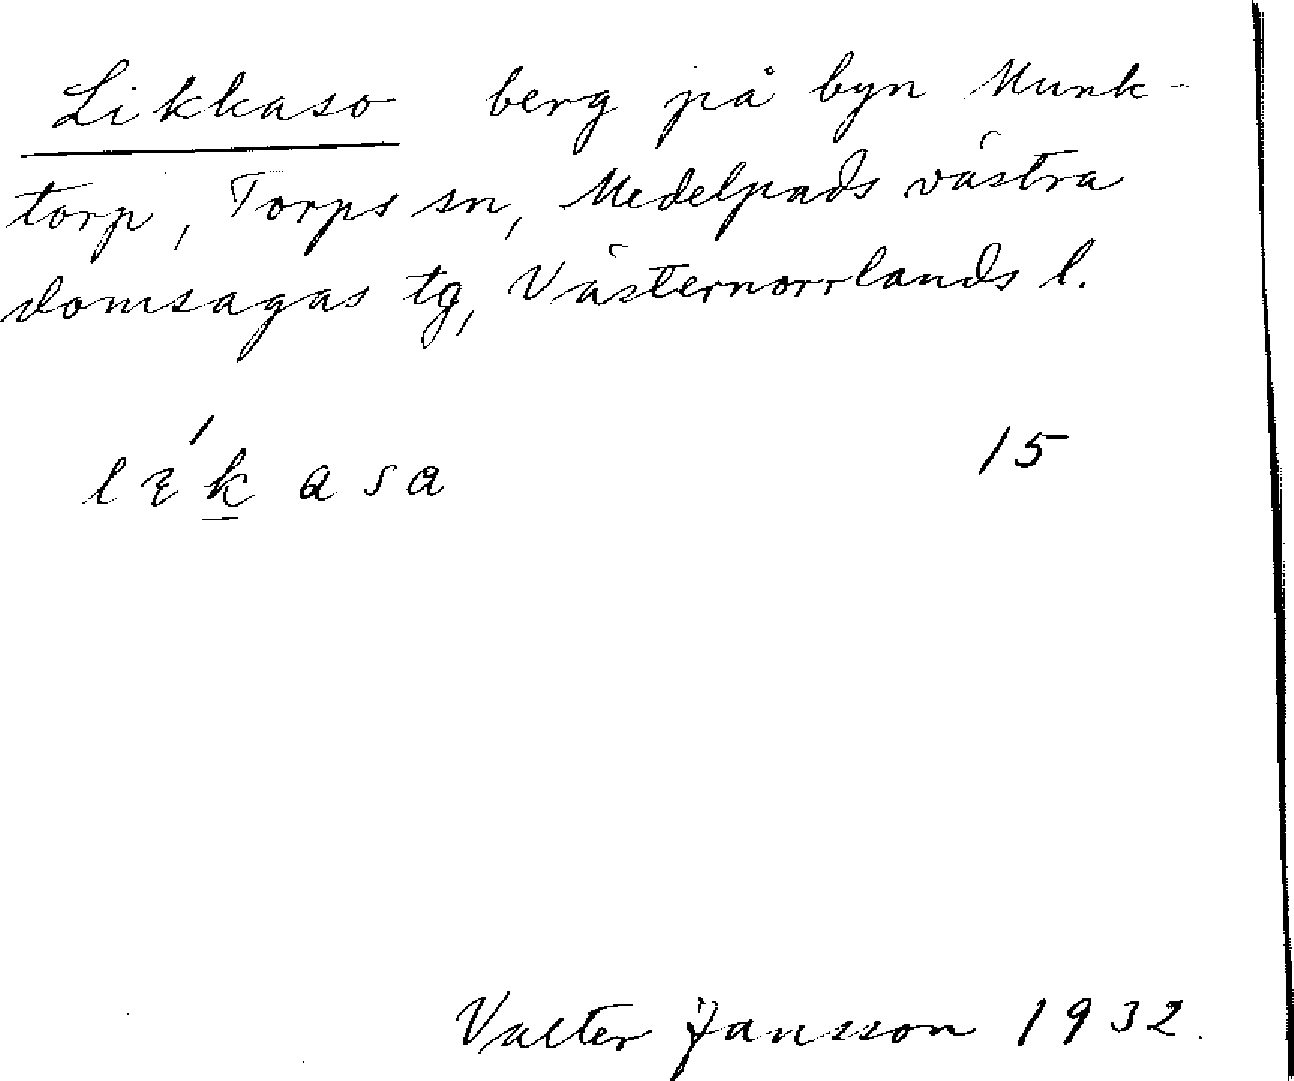 Likkaso berg på byn Munk-
torp, Torps sn, Medelpads västra
domsagas tg, Västernorrlands l.
15
Valter Jansson 1932.